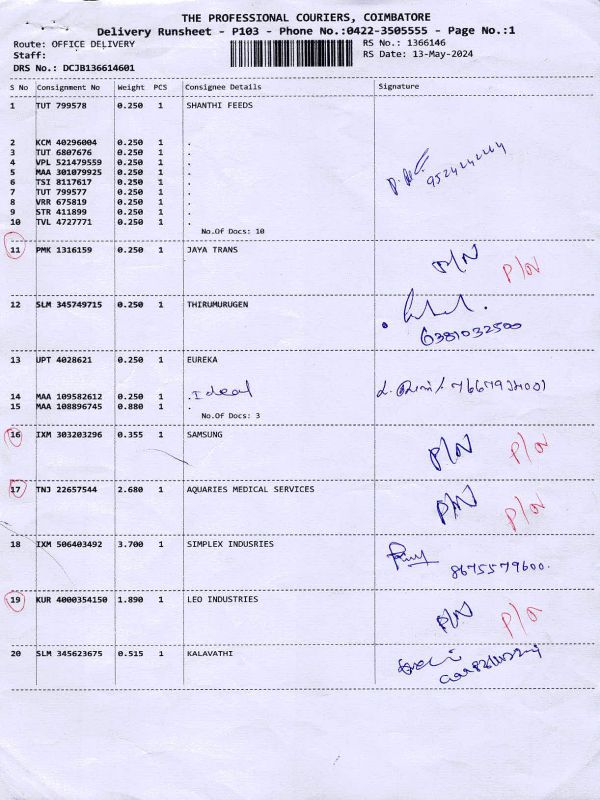 THE PROFESSIONAL COURIERS, COIMBATORE
Delivery Runsheet - P103 - Phone No.:0422-3505555 - Page No.:1
Route: OFFICE DELIVERY RS No.: 1366146
Staff: RS Date: 13-May-2024
DRS No.: DCJB136614601
S No Consignment No Weight PCS Consignee Details Signature
1 TUT 799578 0.250 1 SHANTHI FEEDS
2 KCM 40296004 0.250 1 .
3 TUT 6807676 0.250 1 .
4 VPL 521479559 0.250 1 .
5 MAA 301079925 0.250 1 .
6 TSI 8117617 0.250 1 .
7 TUT 799577 0.250 1 .
8 VRR 675819 0.250 1 .
9 STR 411899 0.250 1 .
10 TVL 4727771 0.250 1 .
No.Of Docs: 10
11 PMK 1316159 0.250 1 JAYA TRANS P/N P/N
12 SLM 345749715 0.250 1 THIRUMURUGEN
6381032500
13 UPT 4028621 0.250 1 EUREKA
14 MAA 109582612 0.250 1 . Ideal
15 MAA 108896745 0.880 1 .
No.Of Docs: 3
16 IXM 303203296 0.355 1 SAMSUNG P/N P/N
17 TNJ 22657544 2.680 1 AQUARIES MEDICAL SERVICES P/N P/N
18 IXM 506403492 3.700 1 SIMPLEX INDUSRIES
8675579600.
19 KUR 4000354150 1.890 1 LEO INDUSTRIES P/N P/N
20 SLM 345623675 0.515 1 KALAVATHI